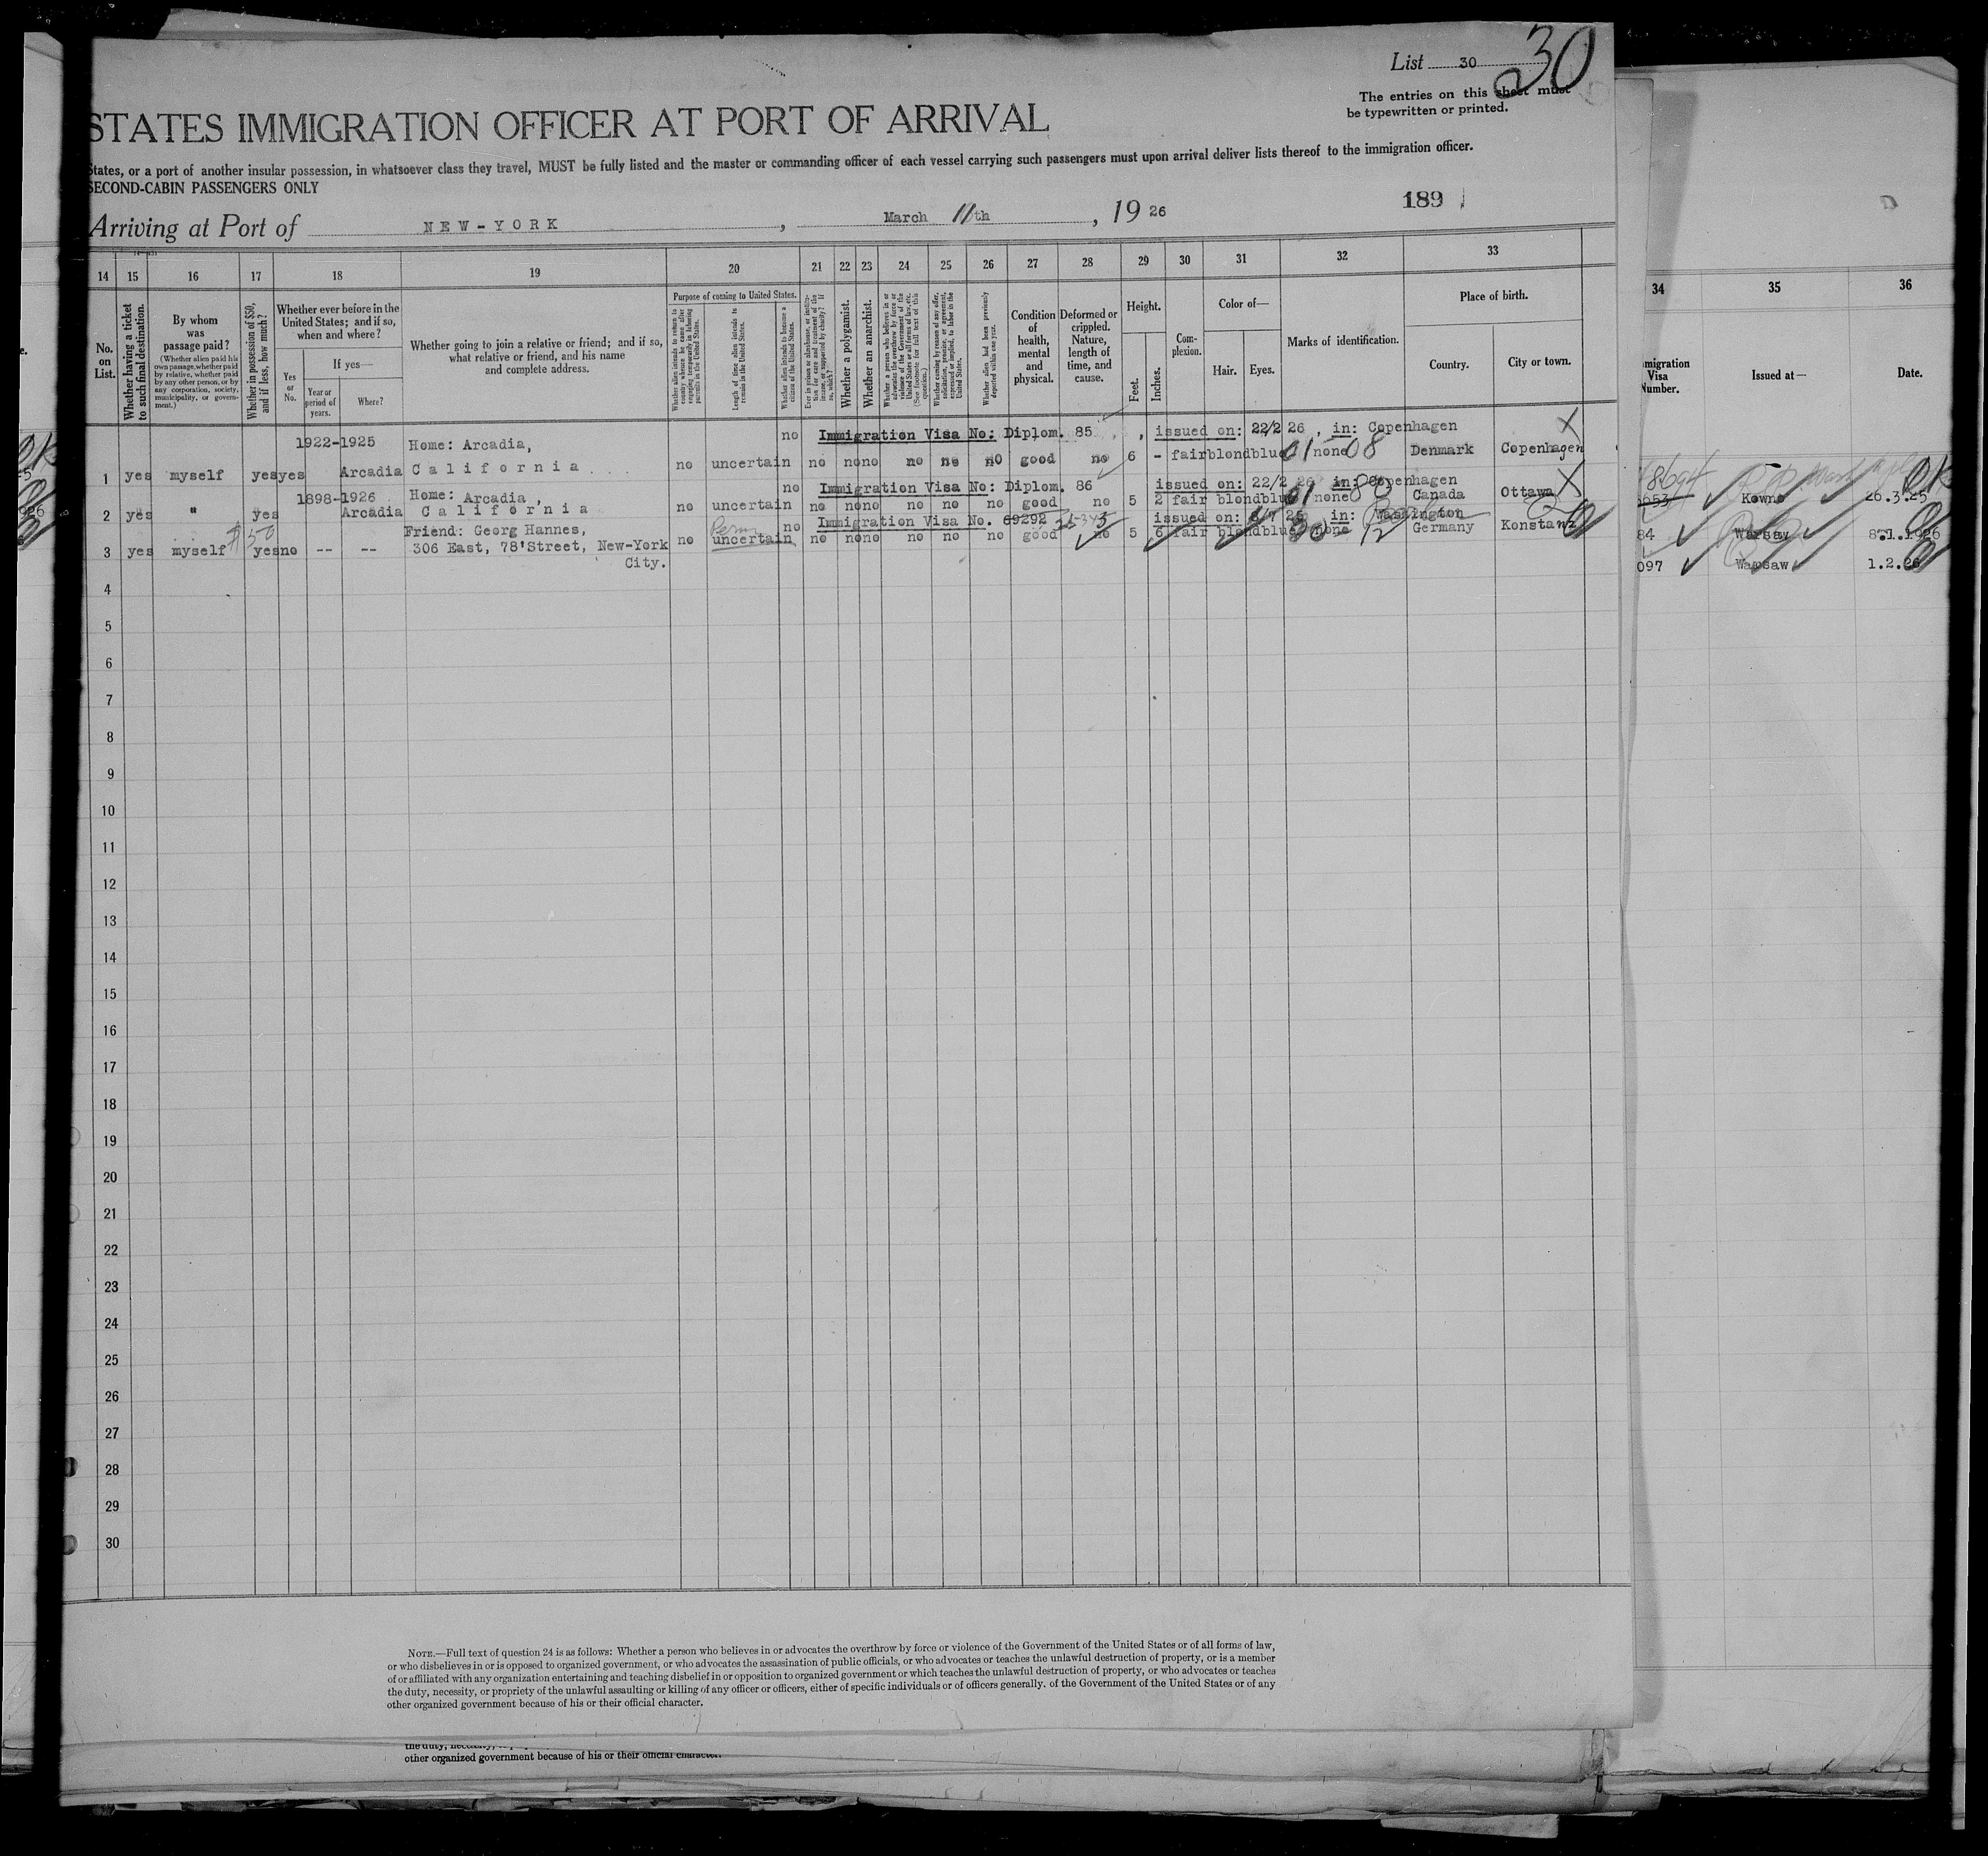 List 30
30
The entries on this sheet must
be typewritten or printed.
STATES IMMIGRATION OFFICER AT PORT OF ARRIVAL
States, or a port of another insular possession, in whatsoever class they travel, MUST be fully listed and the master or commanding officer of each vessel carrying such passengers must upon arrival deliver lists thereof to the immigration officer.
SECOND-CABIN PASSENGERS ONLY
189
Arriving at Port of NEW-YORK, March 11th, 19 26
14 15 16 17 18 19 20 21 22 23 24 25 26 27 28 29 30 31 32 33
No. on List.
Whether having a ticket to such final destination.
By whom was passage paid?
(Whether alien paid his own passage, whether paid by relative, whether paid by any other person, or by any corporation, society, municipality, or government.)
Whether in possession of $50, and if less, how much?
Whether ever before in the United States; and if so, when and where?
Yes or No.
If yes—
Year or period of years.
Where?
Whether going to join a relative or friend; and if so, what relative or friend, and his name and complete address.
Purpose of coming to United States.
Whether alien intends to return to country whence he came after engaging temporarily in laboring pursuits in the United States.
Length of time alien intends to remain in the United States.
Whether alien intends to become a citizen of the United States.
Ever in prison or almshouse, or institution for care and treatment of the insane, or supported by charity? If so, which?
Whether a polygamist.
Whether an anarchist.
Whether a person who believes in or advocates the overthrow by force or violence of the Government of the United States or all forms of law, etc. (See footnote for full text of this question.)
Whether coming by reason of any offer, solicitation, promise, or agreement, expressed or implied, to labor in the United States.
Whether alien had been previously deported within one year.
Condition of health, mental and physical.
Deformed or crippled. Nature, length of time, and cause.
Height.
Feet.
Inches.
Complexion.
Color of—
Hair.
Eyes.
Marks of identification.
Place of birth.
Country.
City or town.
1922-1925 Home: Arcadia, no Immigration Visa No: Diplom. 85 , issued on: 22/2 26 , in: Copenhagen X
1 yes myself yes yes Arcadia California no uncertain no no no no no no good no 6 - fair blond blue 01 none 08 Denmark Copenhagen
1898-1926 Home: Arcadia, no Immigration Visa No: Diplom. 86 issued on: 22/2 26 in: Copenhagen X
2 yes " yes Arcadia California no uncertain no no no no no no good no 5 2 fair blond blue 01 none Canada Ottawa
$50 Friend: Georg Hannes, Perm no Immigration Visa No. 69292 issued on: in: Washington
3 yes myself yes no -- -- 306 East, 78'Street, New-York no uncertain no no no no no no good no 5 6 fair blond blue 30 none 12 Germany Konstanz
City.
4
5
6
7
8
9
10
11
12
13
14
15
16
17
18
19
20
21
22
23
24
25
26
27
28
29
30
NOTE.—Full text of question 24 is as follows: Whether a person who believes in or advocates the overthrow by force or violence of the Government of the United States or of all forms of law,
or who disbelieves in or is opposed to organized government, or who advocates the assassination of public officials, or who advocates or teaches the unlawful destruction of property, or is a member
of or affiliated with any organization entertaining and teaching disbelief in or opposition to organized government or which teaches the unlawful destruction of property, or who advocates or teaches
the duty, necessity, or propriety of the unlawful assaulting or killing of any officer or officers, either of specific individuals or of officers generally. of the Government of the United States or of any
other organized government because of his or their official character.
other organized government because of his or their official character.
34 35 36
migration Visa Number.
Issued at—
Date.
653 Kowno 26.3.25
84 Warsaw 8.1.1926
097 Warsaw 1.2.26